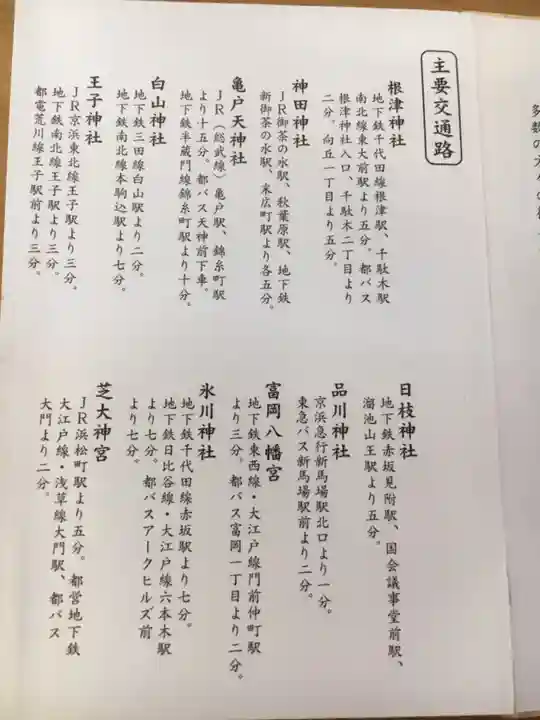 主要交通路
根津神社
地下鉄千代田線根津駅、千駄木駅
南北線東大前駅より五分。都バス
根津神社入口、千駄木二丁目より
二分。向丘一丁目より五分。
神田神社
JR御茶の水駅、秋葉原駅、地下鉄
新御茶の水駅、末広町駅より各五分。
亀戸天神社
JR（総武線）亀戸駅、錦糸町駅
より十五分。都バス天神前下車。
地下鉄半蔵門線錦糸町駅より十分。
白山神社
地下鉄三田線白山駅より二分。
地下鉄南北線本駒込駅より七分。
王子神社
JR京浜東北線王子駅より三分。
地下鉄南北線王子駅より三分。
都電荒川線王子駅前より三分。
日枝神社
地下鉄赤坂見附駅、国会議事堂前駅、
溜池山王駅より五分。
品川神社
京浜急行新馬場駅北口より一分。
東急バス新馬場駅前より二分。
富岡八幡宮
地下鉄東西線・大江戸線門前仲町駅
より三分。都バス富岡一丁目より二分。
氷川神社
地下鉄千代田線赤坂駅より七分。
地下鉄日比谷線・大江戸線六本木駅
より七分。都バスアークヒルズ前
より七分。
芝大神宮
JR浜松町駅より五分。都営地下鉄
大江戸線・浅草線大門駅、都バス
大門より二分。